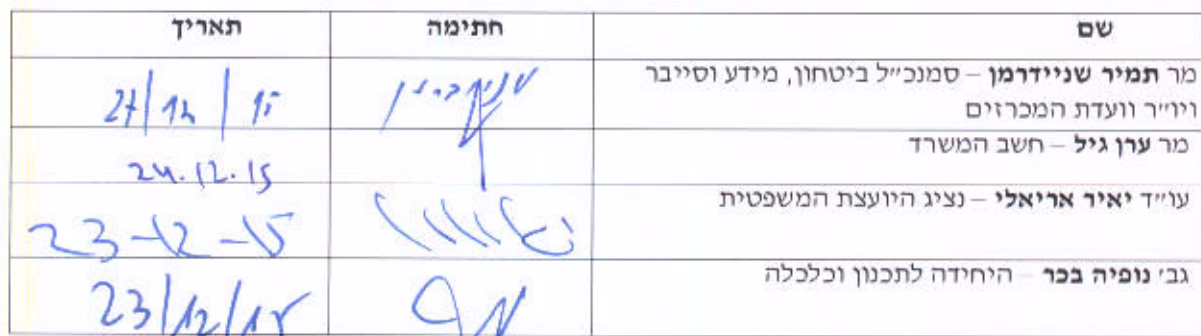 שם חתימה תאריך
מר תמיר שניידרמן – סמנכ״ל ביטחון, מידע וסייבר
ויו״ר וועדת המכרזים שניידרמן 27/12/15
מר ערן גיל – חשב המשרד 24.12.15
עו״ד יאיר אריאלי – נציג היועצת המשפטית 23-12-15
גב׳ נופיה בכר – היחידה לתכנון וכלכלה 23/12/15